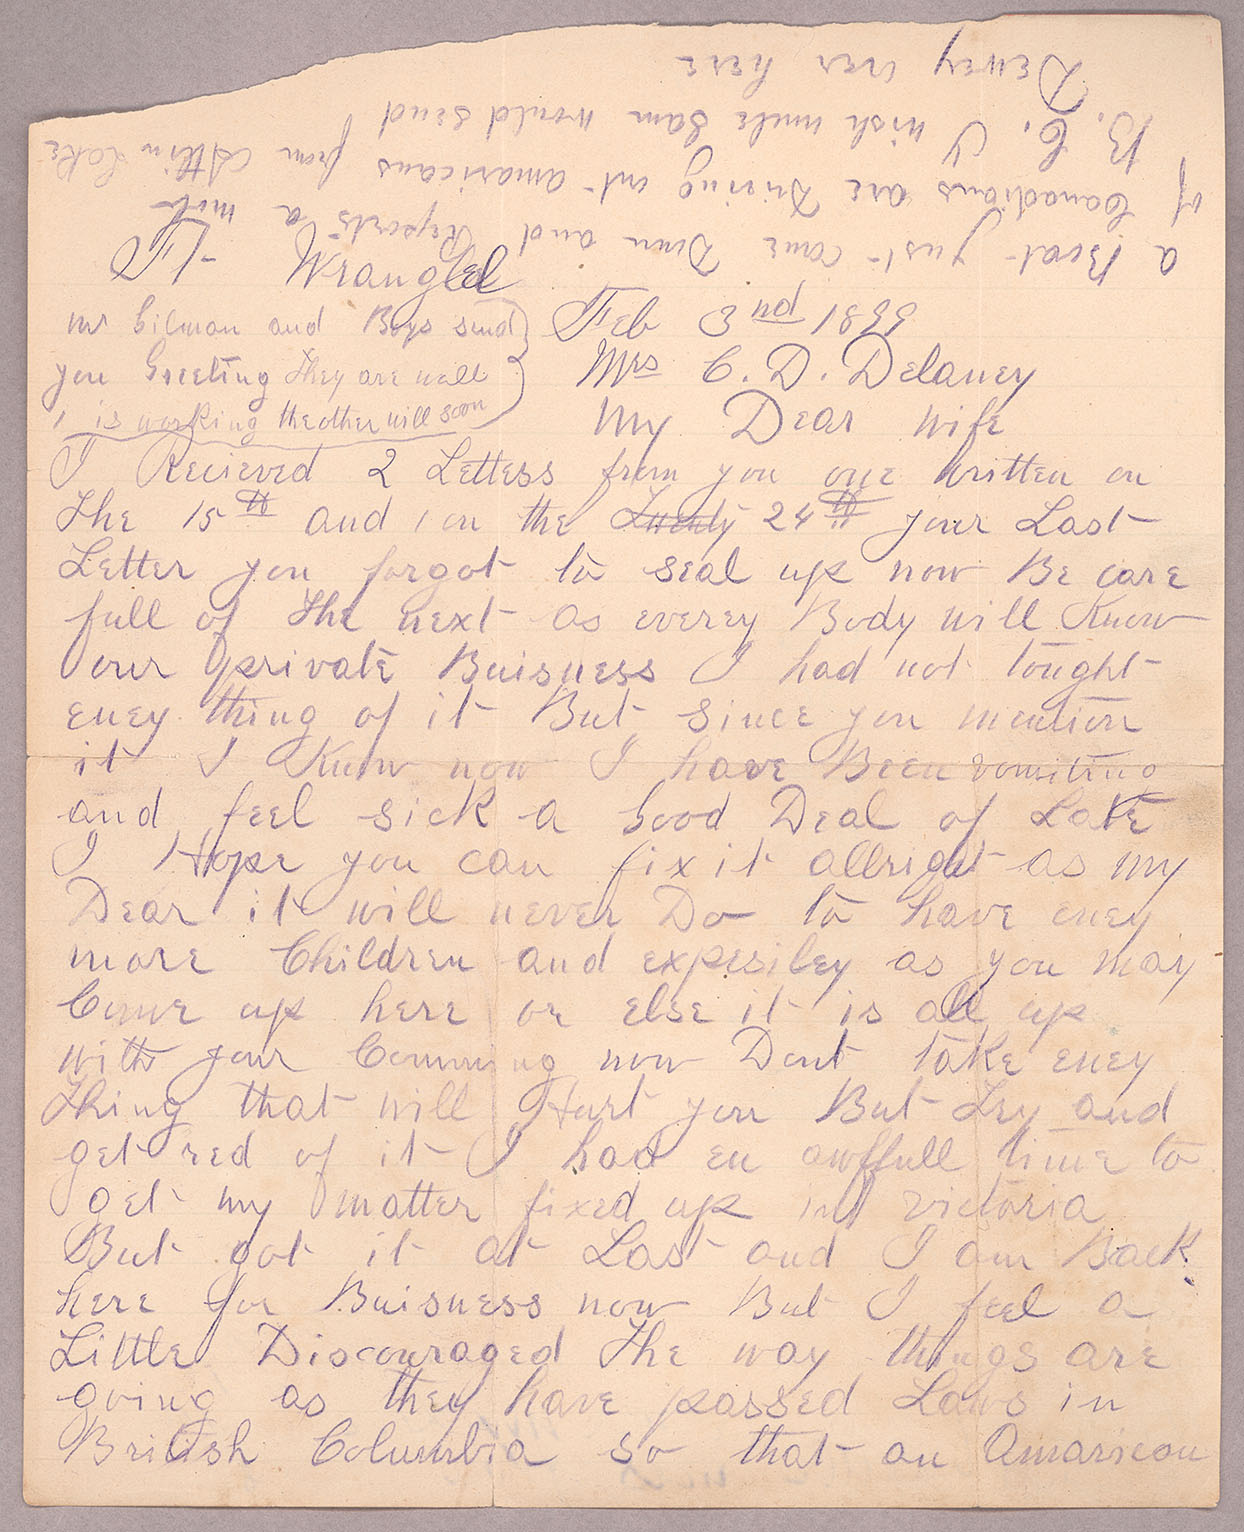 a Boat just come Down and Reports a mob
of Canadians are Driving out Amaricans from Atlin Lake
B. C. I wish uncle Sam would send
Dewey over here
Ft Wrangel
Feb 3rd 1899
mr Gilman and Boys send
you Greeting they are well
1 is working the other will soon
Mrs C. D. Delaney
My Dear wife
I Recieved 2 Letters from you one written on
the 15th and 1 on the Twenty 24th your Last
Letter you forgot to seal up now Be care
full of the next as everey Body will Know
our private Buisness I had not tought
eney thing of it But since you mention
it I Know now I have Been vomiting
and feel sick a Good Deal of Late
I Hope you can fix it allright as my
Dear it will never Do to have eney
more Children and expesiley as you may
Come up here or else it is all up
with your Comming now Dont take eney
thing that will Hurt you But Try and
get red of it I had en awffull time to
get my matter fixed up in victoria
But got it at Last and I am Back
here for Buisness now But I feel a
Little Discouraged the way things are
going as they have passed Laws in
British Columbia so that an Amarican